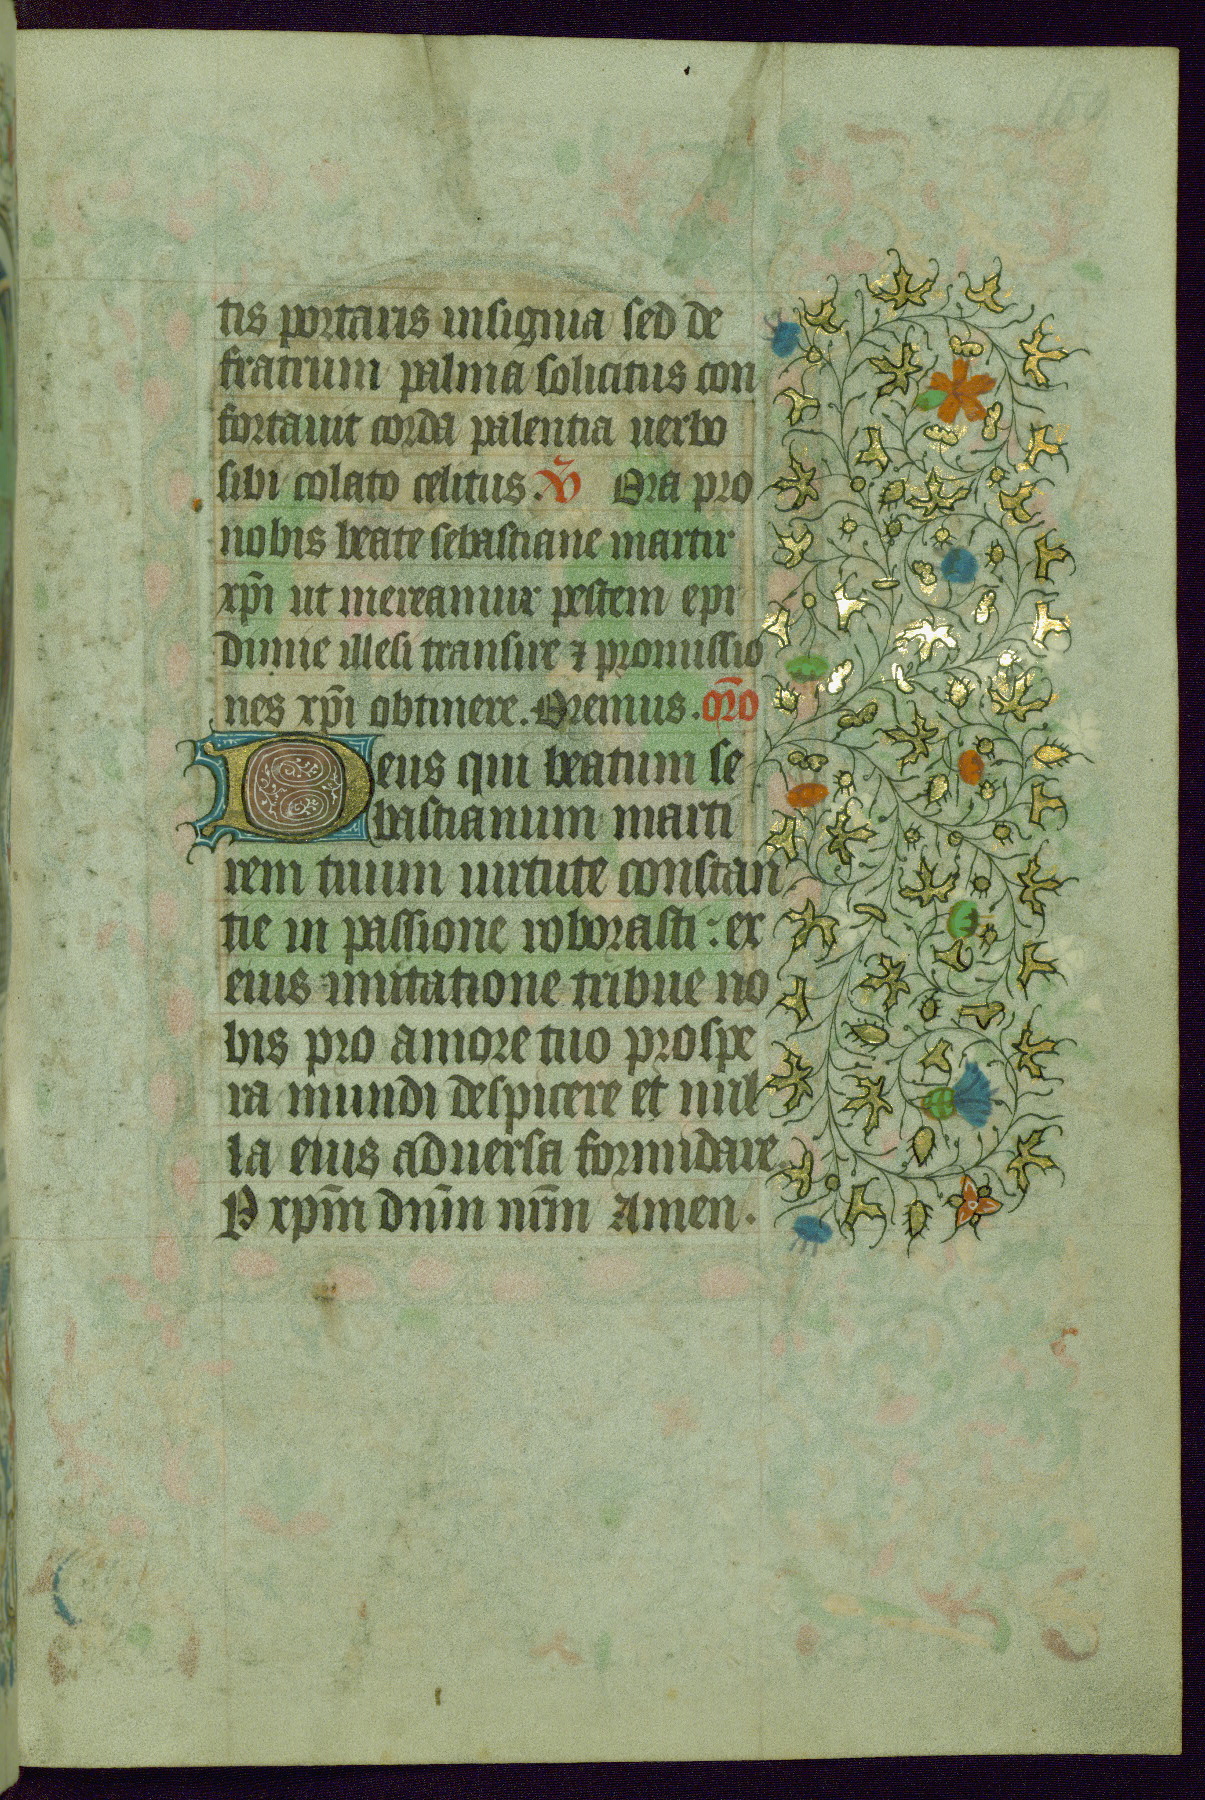 150
tis portaris insignia sed de
fratrum palma solicitus con
fortauit corda palentia uerbo
sibi colato celitus. V̄ Ora pro
nobis beate sebastiane martir
xp̄i ut mereamur pestem epi
dimie illesi transire ⁊ promissio
nes xp̄i obtinere. Oremus. or̄o
Deus qui beatum se
bastianum marti
rem tuum uirtute constan
tie in passione roborasti: ex
eius imitatione tribue no
bis pro amore tuo prospe
ra mundi despicere et nul
la eius aduersa formidare
P xp̄m dn̄m nr̄m Amen.